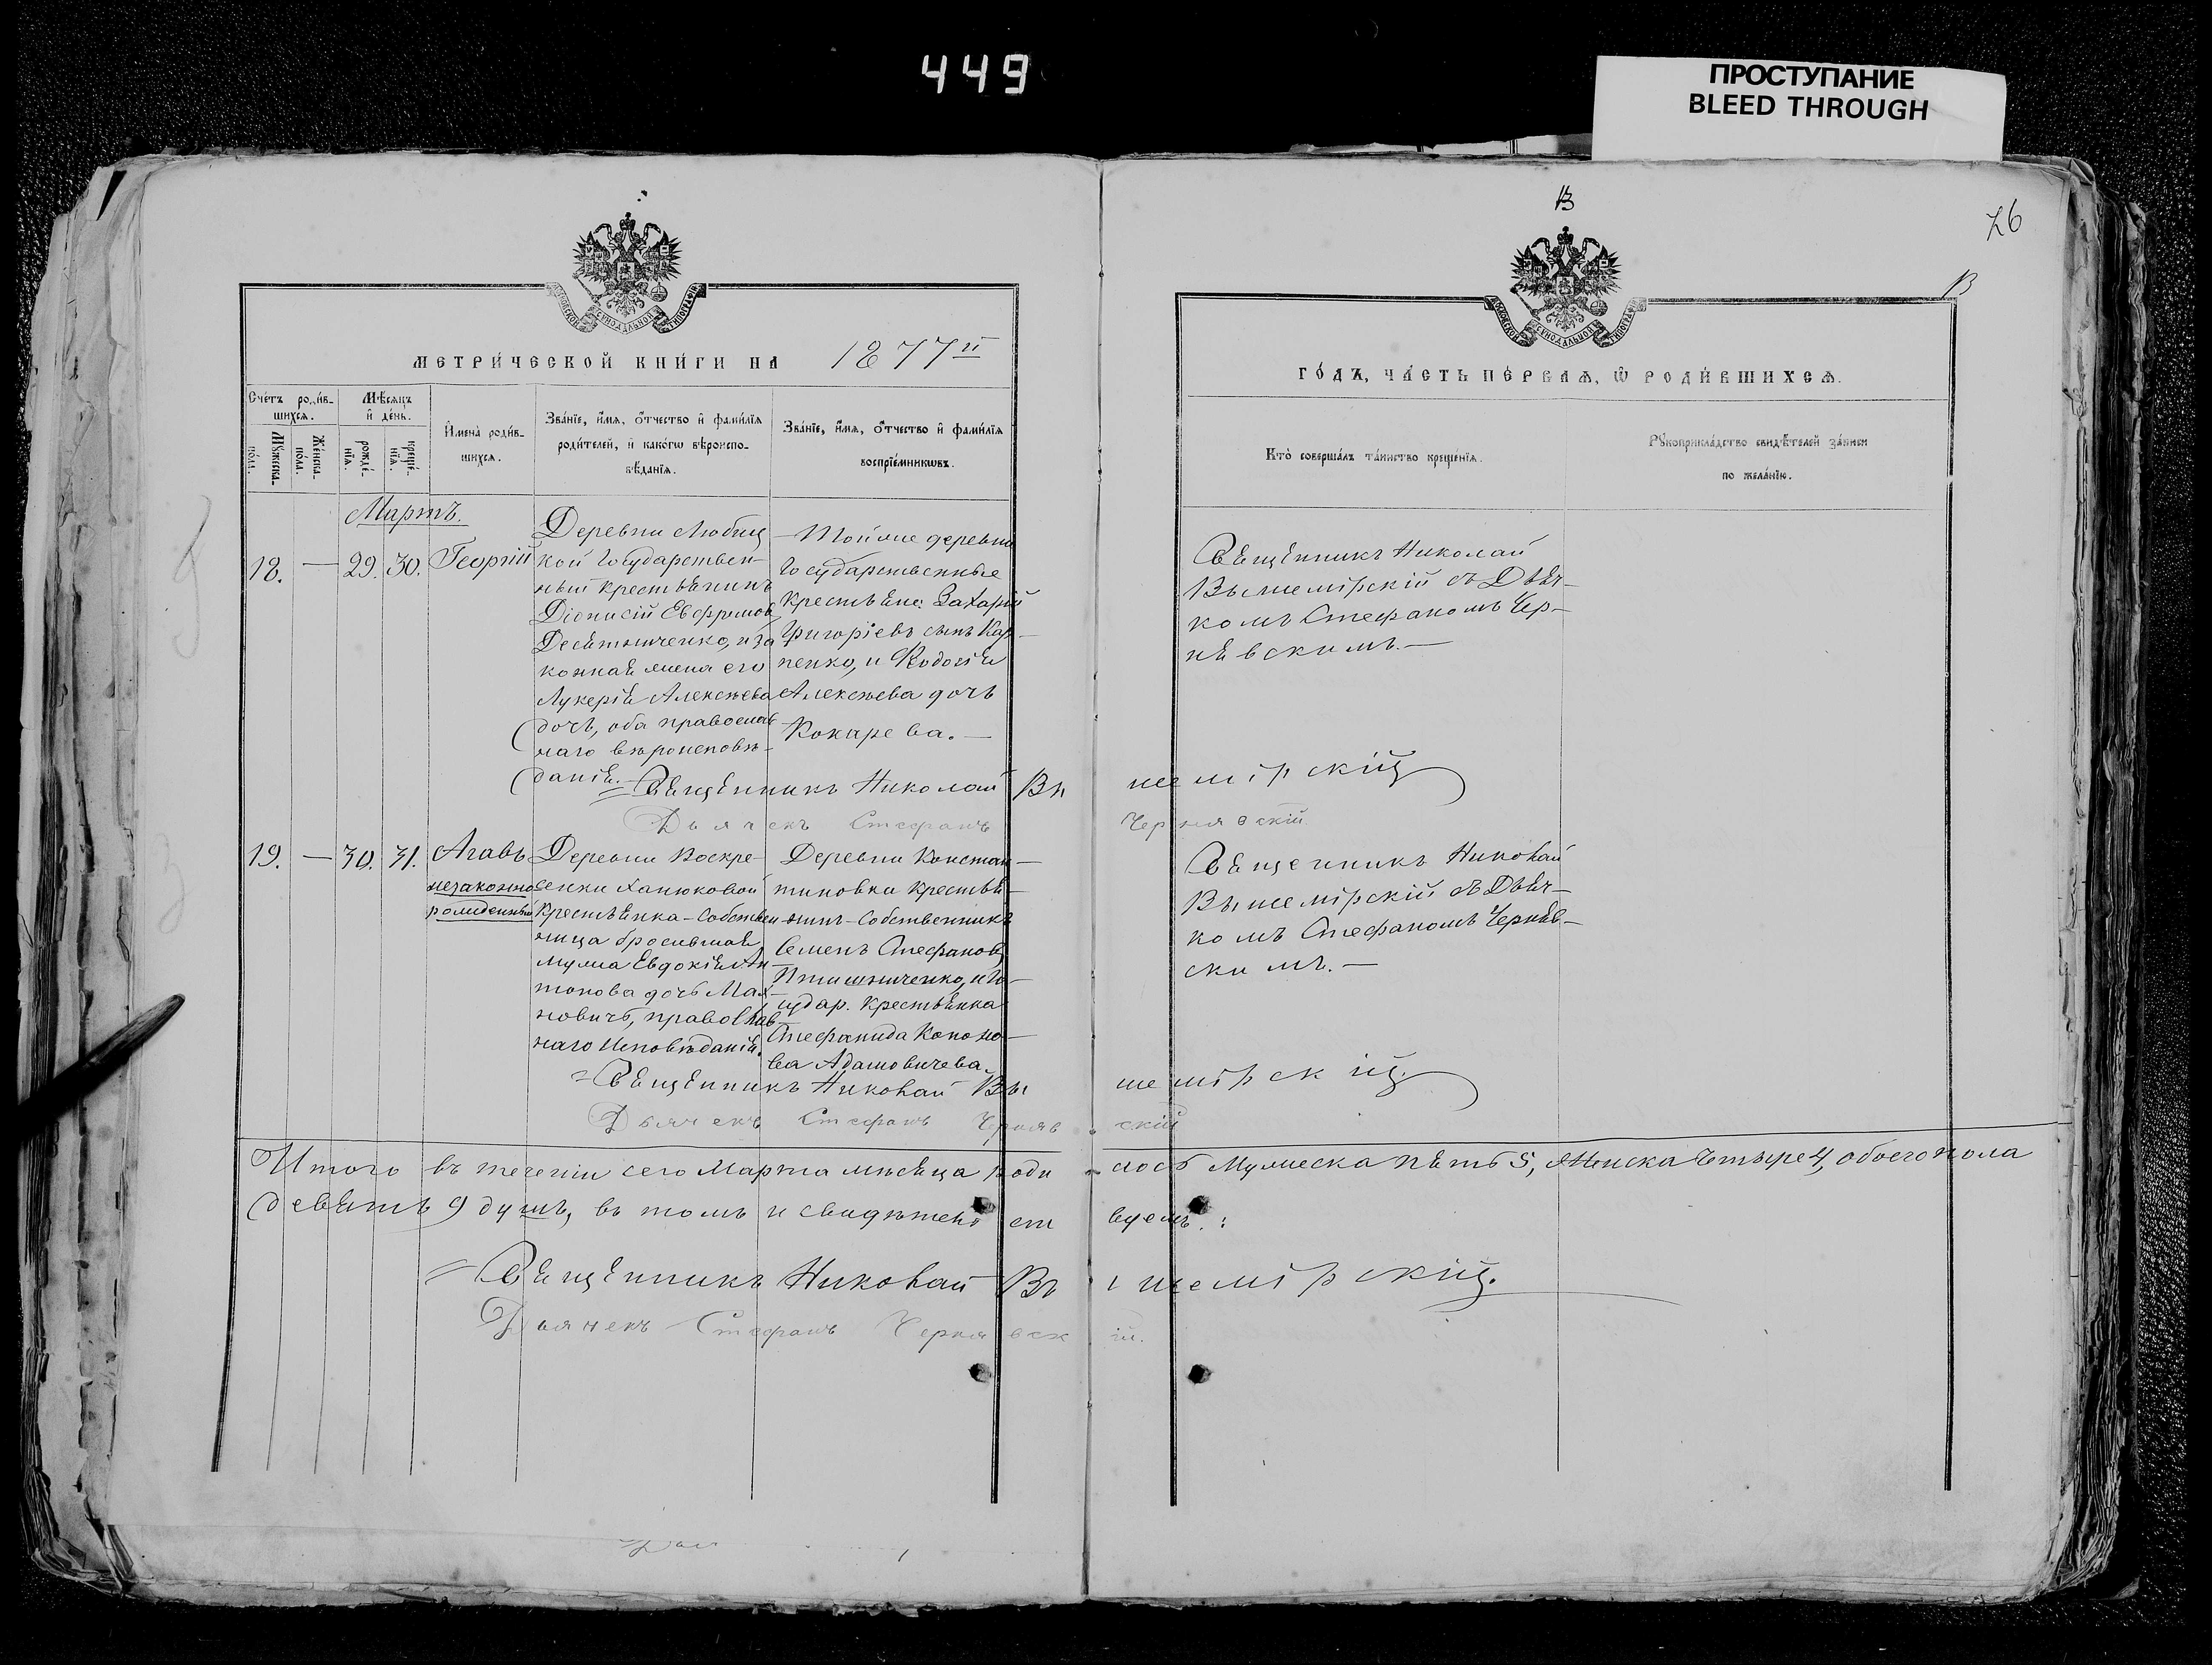 449
ПРОСТУПАНИЕ
BLEED THROUGH
В
76
В
МЕТРИ́ЧЕСКОЙ КНИ́ГИ НА 1877й
ГО́ДЪ, ЧА́СТЬ ПЕ́РВАѦ, Ѡ РОДИ́ВШИХСѦ.
Сче́тъ роди́в-
шихсѧ.
Мꙋ́жеска пола.
Же́нска пола.
Мѣсѧцъ и де́нь.
рожде́-
нїѧ.
креще́-
нїѧ.
Имена̀ роди́в-
шихсѧ.
Зва́нїе, и́мѧ, о́тчество и фами́лїѧ
роди́телей, и како́гѡ вѣроиспо-
вѣданїѧ.
Зва́нїе, и́мѧ, о́тчество и фами́лїѧ
воспрїе́мникѡвъ.
Кто̀ соверша́лъ та́инство креще́нїѧ.
Рꙋкоприкла́дство свидѣ́телей за́писи
по жела́нїю.
Мартъ.
18. — 29. 30. Георгій
Деревни Любиц
кой Государствен-
ный крестьянинъ
Діонисій Евфимов
Десятниченко, и за
конная жена его
Лукерія Алексѣева
дочь, оба православ
наго вѣроисповѣ-
данія.
Той же деревни
Государственные
крестьяне: Захарій
Григоріевъ сынъ Кар-
пенко, и Ѳодосія
Алексѣева дочь
Кокарева. —
Священникъ Николай
Вышемірскій съ Дьяч-
комъ Стефаномъ Чер-
нявскимъ. —
= Священникъ Николай Вышемірскій
Дьячекъ Стефанъ Чернявскій
19. — 30. 31. Агавъ
незаконно
рожденный
Деревни Воскре-
сенки Ханюковой
крестьянка-собствен
ница бросившая
мужа Евдокія Ан-
тонова дочь Мах-
новичъ, православ
наго исповѣданія.
Деревни Констан-
тиновки крестья-
нинъ-собственникъ
Семенъ Стефановъ
Птишниченко, и Го-
судар. крестьянка
Стефанида Конно-
ва Адамовичева.
Священникъ Николай
Вышемірскій съ Дьяч-
комъ Стефаномъ Черняв-
скимъ. —
= Священникъ Николай Вышемірскій.
Дьячекъ Стефанъ Чернявскій
Итого въ теченіи сего Марта мѣсяца родилось Мужеска пять 5, Женска четыре 4, обоего пола
девять 9 душъ, въ томъ и свидѣтельствуемъ.:
= Священникъ Николай Вышемірскій.
Дьячекъ Стефанъ Чернявскій.